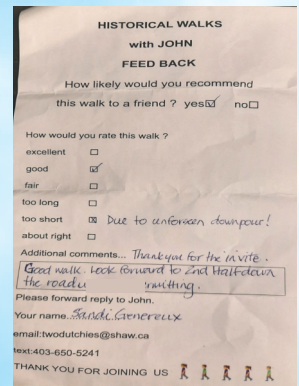 HISTORICAL WALKS
with JOHN
FEED BACK
How likely would you recommend
this walk to a friend ? yes☑ no☐
How would you rate this walk ?
excellent ☐
good ☑
fair ☐
too long ☐
too short ☒ Due to unforseen downpour!
about right ☐
Additional comments... Thankyou for the invite.
Good walk. Look forward to 2nd Half down
the road
Please forward reply to John.
Your name. Sandi Genereux
email:twodutchies@shaw.ca
text:403-650-5241
THANK YOU FOR JOINING US